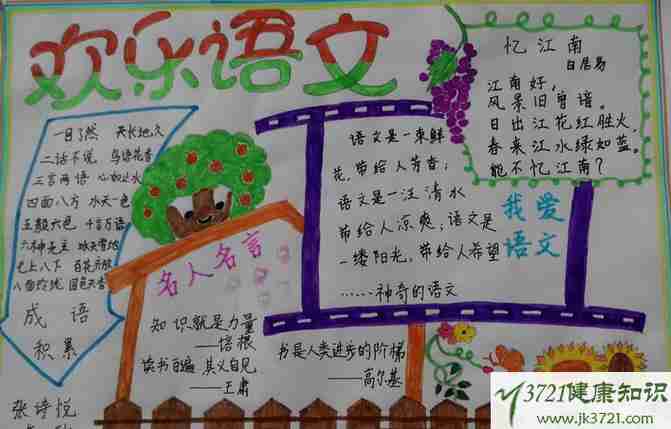 欢乐语文
忆江南
白居易
江南好，
风景旧曾谙。
日出江花红胜火，
春来江水绿如蓝。
能不忆江南？
一目了然 天长地久
二话不说 鸟语花香
三言两语 心如止水
四面八方 水天一色
五颜六色 千言万语
六神无主 冰天雪地
七上八下 百花齐放
八面玲珑 国色天香
成语
积累
语文是一束鲜
花，带给人芳香；
语文是一汪清水
带给人凉爽；语文是
一缕阳光，带给人希望
……神奇的语文
我爱
语文
名人名言
知识就是力量
——培根
读书百遍 其义自见
——王肃
书是人类进步的阶梯
——高尔基
张诗悦
3721健康知识
www.jk3721.com